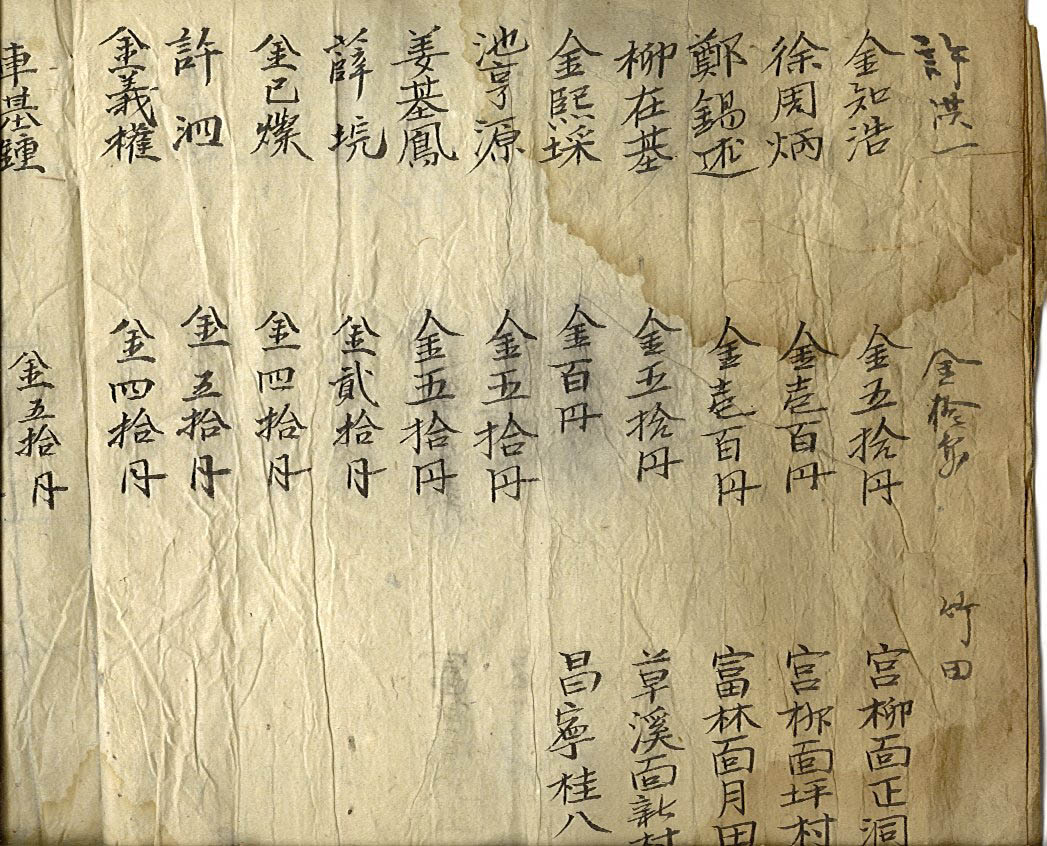 許洪一 金拾五円 竹田
金知浩 金五拾円 宮柳面正洞
徐周炳 金壱百円 宮柳面坪村
鄭錫述 金壱百円 富林面月田
柳在基 金五拾円 草溪面新村
金熙埰 金百円 昌寧桂八
池亨源 金五拾円
姜基鳳 金五拾円
薛垸 金貳拾円
金已燦 金四拾円
許泗 金五拾円
金義權 金四拾円
車基鍾 金五拾円